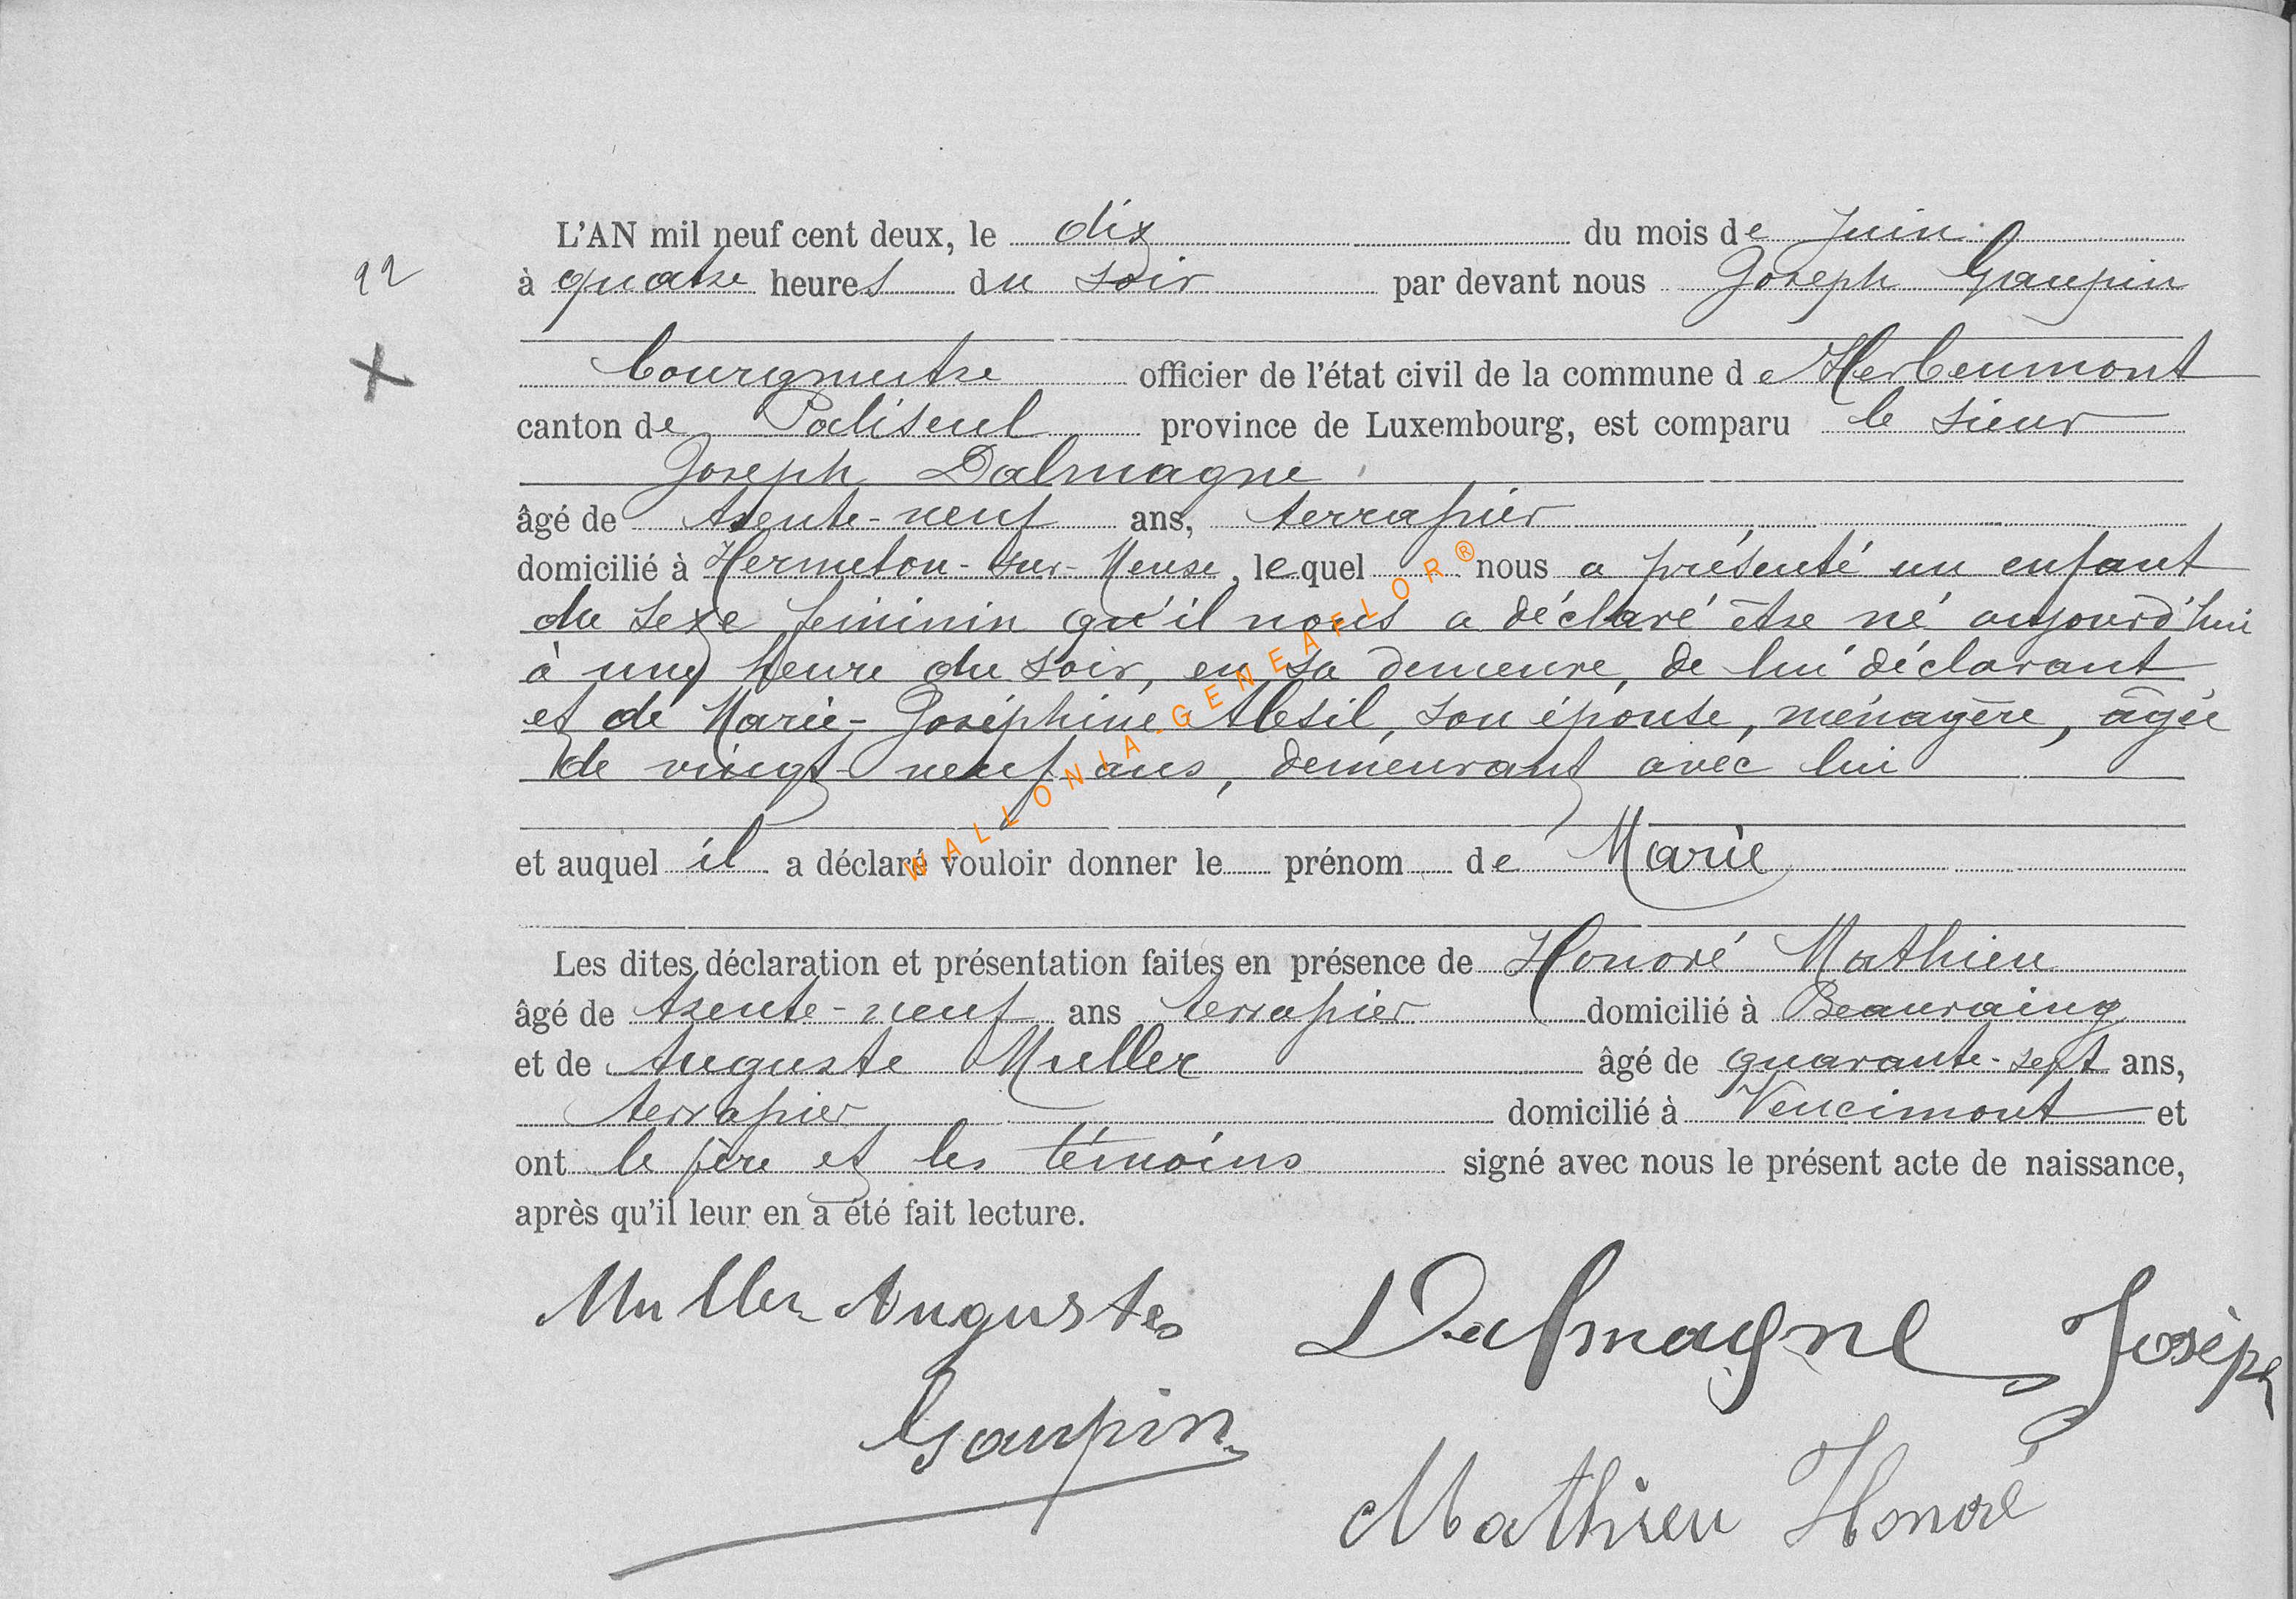 L'AN mil neuf cent deux, le dix du mois de Juin
22
à quatre heures du soir par devant nous Joseph Gaupin
X
bourgmestre officier de l'état civil de la commune de Herbeumont
canton de Paliseul province de Luxembourg, est comparu le sieur
Joseph Dalmagne
âgé de trente-neuf ans, terrassier
domicilié à Hermeton-sur-Meuse, lequel nous a présenté un enfant
du sexe féminin qu'il nous a déclaré être né aujourd'hui
à une heure du soir, en sa demeure, de lui déclarant
et de Marie-Joséphine son épouse, ménagère, âgée
de vingt-neuf ans, demeurant avec lui
et auquel il a déclaré vouloir donner le prénom de Marie
Les dites déclaration et présentation faites en présence de Honoré Mathieu
âgé de trente-neuf ans terrassier domicilié à Beauraing
et de Auguste Muller âgé de quarante-sept ans,
terrassier domicilié à Vencimont et
ont le père et les témoins signé avec nous le présent acte de naissance,
après qu'il leur en a été fait lecture.
Muller Auguste
Dalmagne Joseph
Gaupin
Mathieu Honoré
WALLONIA-GENEAFLOR®